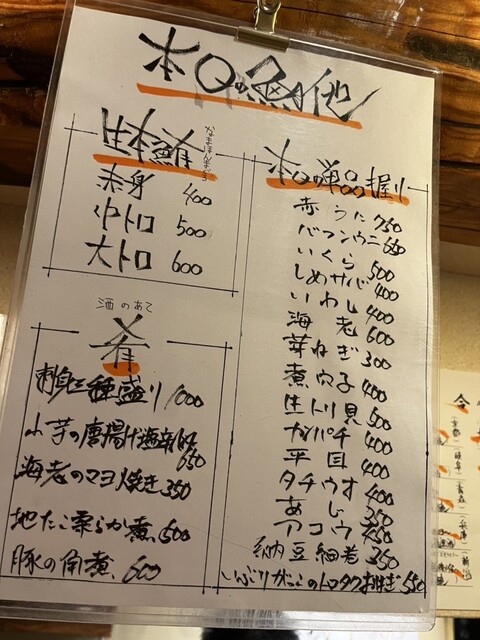 本日の魚他
生本鮪
なまほんまぐろ
赤身 400
中トロ 500
大トロ 600
酒のあて
肴
刺身三種盛り 1000
小芋の唐揚げ塩辛
650
海老のマヨ焼き 350
地たこ柔らか煮 500
豚の角煮 600
本日の単品握り
赤うに 750
バフンウニ 650
いくら 500
しめサバ 400
いわし 400
海老 600
芽ねぎ 300
煮穴子 400
生トリ貝 500
ガパチ 400
平目 400
タチウオ 400
あじ 350
アコウ
納豆細巻 350
いぶりがっこのトロタク 550